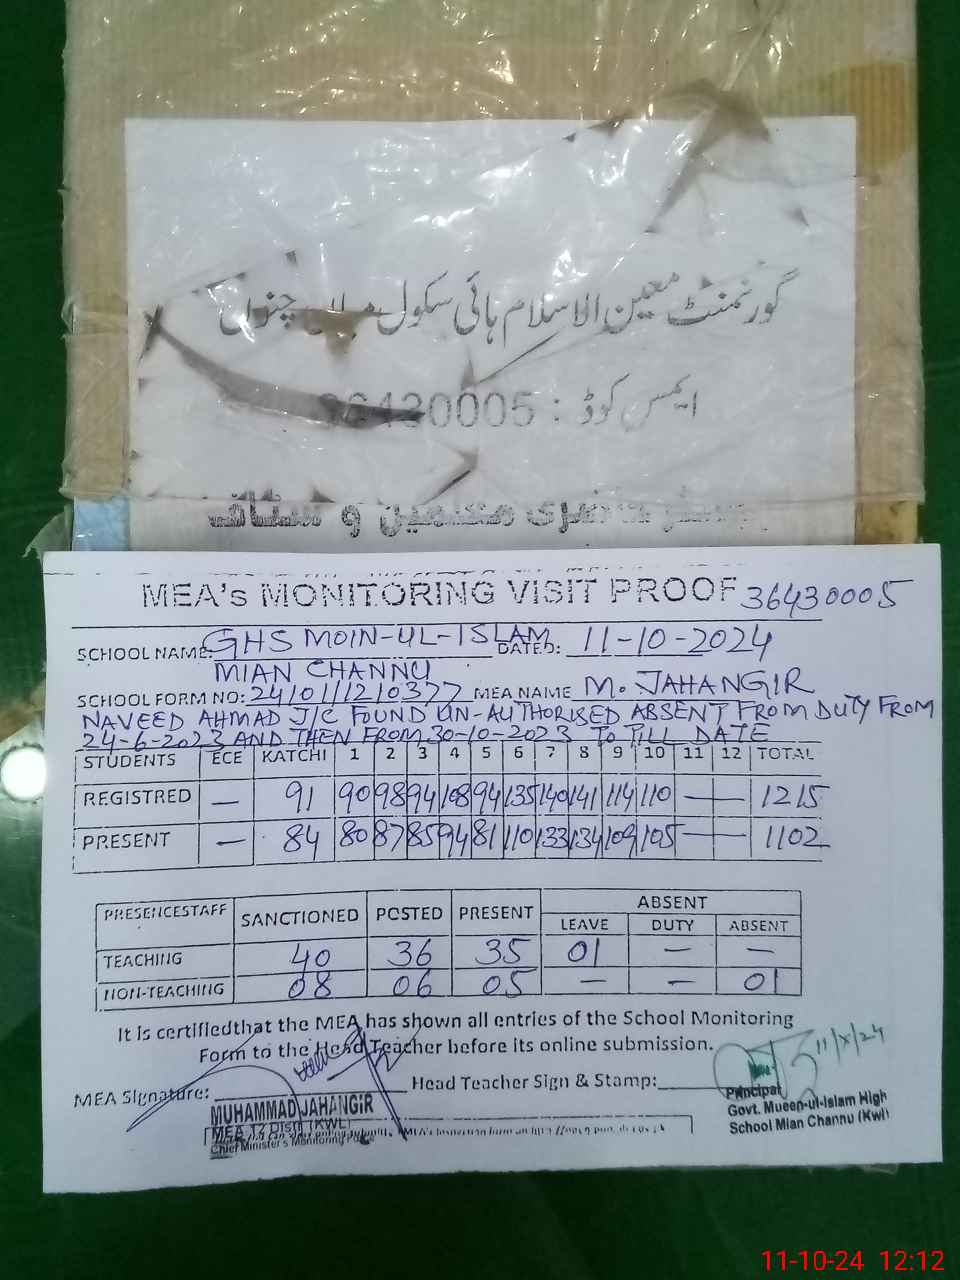 گورنمنٹ معین الاسلام ہائی سکول میاں چنوں
ایمس کوڈ : 36430005
حاضری معلمین و سٹاف
MEA's MONITORING VISIT PROOF 36430005
SCHOOL NAME: GHS MOIN-UL-ISLAM DATED: 11-10-2024
MIAN CHANNU
SCHOOL FORM NO: 24101111210377 MEA NAME M. JAHANGIR
NAVEED AHMAD J/C FOUND UN-AUTHORISED ABSENT FROM DUTY FROM
24-6-2023 AND THEN FROM 30-10-2023 To TILL DATE
STUDENTS ECE KATCHI 1 2 3 4 5 6 7 8 9 10 11 12 TOTAL
REGISTRED — 91 90 98 94 108 94 135 140 141 114 110 — 1215
PRESENT — 84 80 87 85 94 81 110 133 134 109 105 — 1102
PRESENCESTAFF SANCTIONED POSTED PRESENT ABSENT
LEAVE DUTY ABSENT
TEACHING 40 36 35 01 — —
NON-TEACHING 08 06 05 — — 01
It is certifiedthat the MEA has shown all entries of the School Monitoring
Form to the Head Teacher before its online submission.
11/X/24
MEA Signature: Head Teacher Sign & Stamp:
MUHAMMAD JAHANGIR
MEA 12 Distt (KWL)
Chief Minister's Monitoring
Principal
Govt. Mueen-ul-Islam High
School Mian Channu (Kwl)
11-10-24 12:12